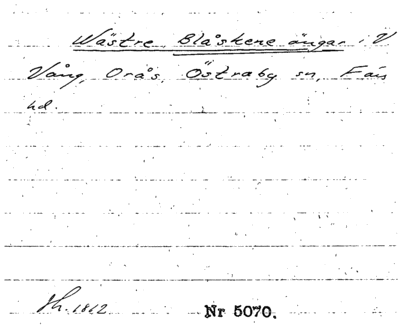 Wästre Blåskene ängar i V
Vång, Orås, Östraby sn, Färs
hd.
Sk. 1812 Nr 5070.